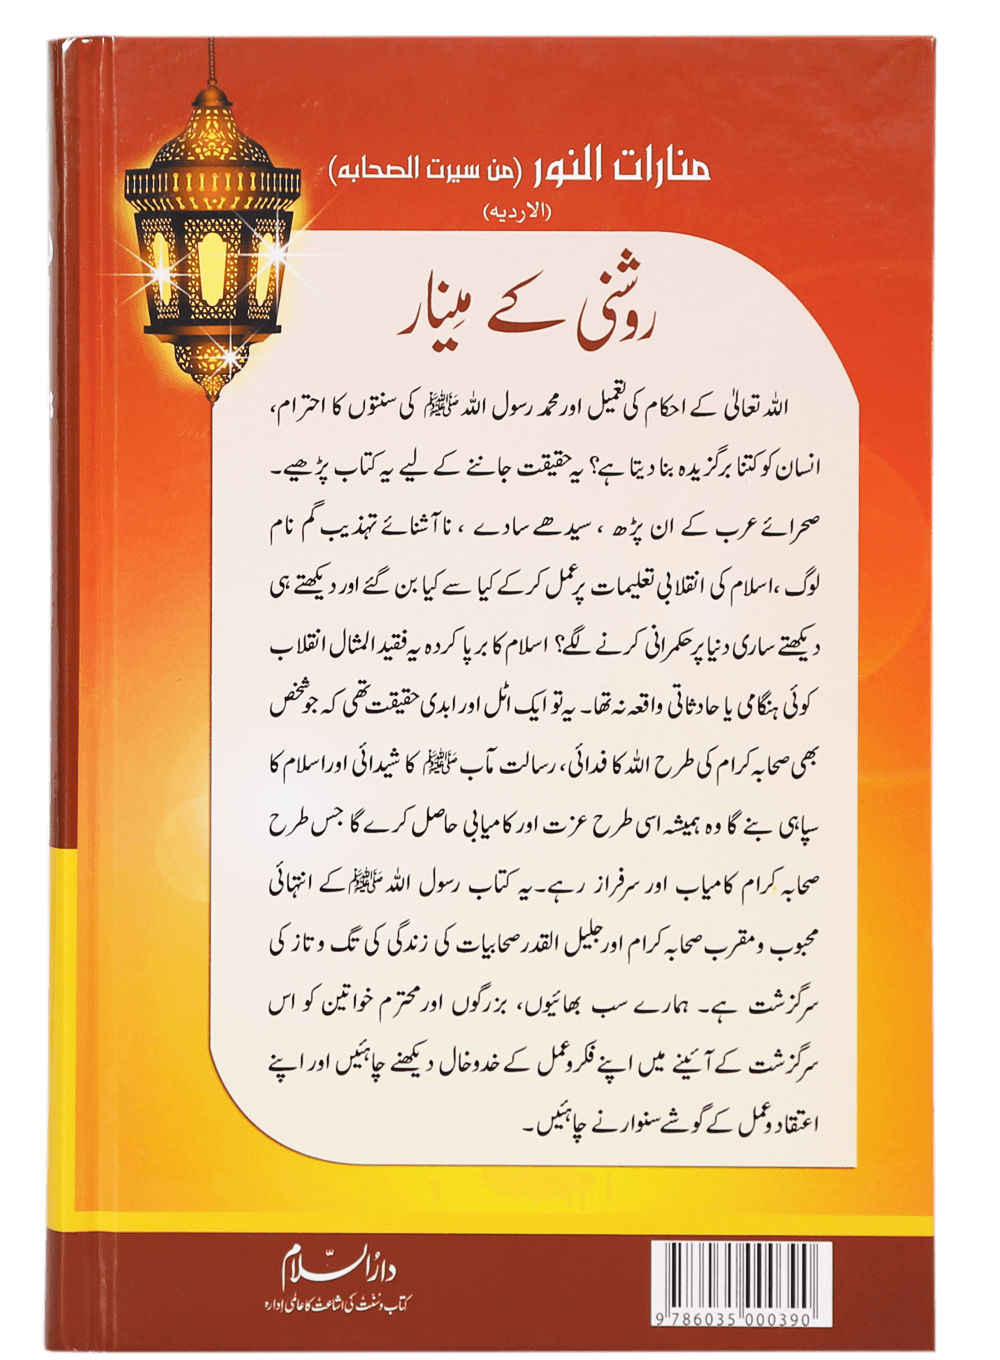 منارات النور (من سيرت الصحابه)
(الارديه)
روشنی کے مِینار
اللہ تعالیٰ کے احکام کی تعمیل اور محمد رسول اللہ ﷺ کی سنتوں کا احترام،
انسان کو کتنا برگزیدہ بنا دیتا ہے؟ یہ حقیقت جاننے کے لیے یہ کتاب پڑھیے۔
صحرائے عرب کے ان پڑھ ، سیدھے سادے ، ناآشنائے تہذیب گم نام
لوگ ، اسلام کی انقلابی تعلیمات پر عمل کر کے کیا سے کیا بن گئے اور دیکھتے ہی
دیکھتے ساری دنیا پر حکمرانی کرنے لگے؟ اسلام کا برپا کردہ یہ فقید المثال انقلاب
کوئی ہنگامی یا حادثاتی واقعہ نہ تھا۔ یہ تو ایک اٹل اور ابدی حقیقت تھی کہ جو شخص
بھی صحابہ کرام کی طرح اللہ کا فدائی، رسالت مآب ﷺ کا شیدائی اور اسلام کا
سپاہی بنے گا وہ ہمیشہ اسی طرح عزت اور کامیابی حاصل کرے گا جس طرح
صحابہ کرام کامیاب اور سرفراز رہے۔ یہ کتاب رسول اللہ ﷺ کے انتہائی
محبوب و مقرب صحابہ کرام اور جلیل القدر صحابیات کی زندگی کی تگ و تاز کی
سرگزشت ہے۔ ہمارے سب بھائیوں، بزرگوں اور محترم خواتین کو اس
سرگزشت کے آئینے میں اپنے فکر و عمل کے خدوخال دیکھنے چاہئیں اور اپنے
اعتقاد و عمل کے گوشے سنوارنے چاہئیں۔
دارُالسّلام
کتاب و سنت کی اشاعت کا عالمی ادارہ
9 786035 000390